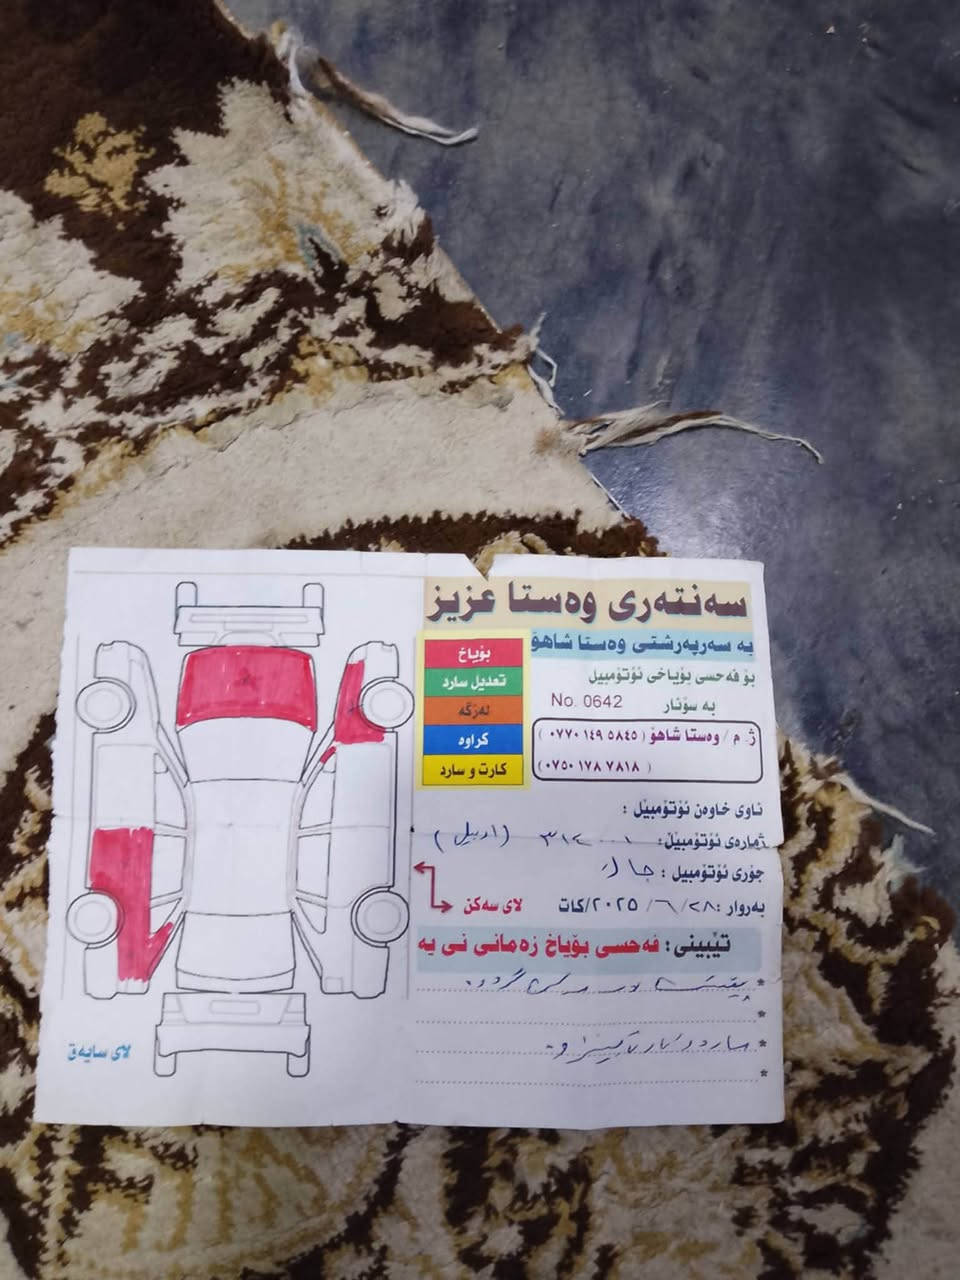 سەنتەری وەستا عزیز
بە سەرپەرشتی وەستا شاهۆ
بۆ فەحسی بۆیاخی ئۆتۆمبیل
بە سۆنار
No. 0642
ژ. م / وەستا شاهۆ ( ٠٧٧٠ ١٤٩ ٥٨٤٥ )
( ٠٧٥٠ ١٧٨ ٧٨١٨ )
بۆیاخ
تعدیل سارد
لەزگە
کراوە
کارت و سارد
ناوی خاوەن ئۆتۆمبیل :
ژمارەی ئۆتۆمبیل:
جۆری ئۆتۆمبیل :
بەروار : ٢٨/ ٦ /٢٠٢٥/کات
لای سەکن
تێبینی : فەحسی بۆیاخ زەمانی نی یە
لای سایەق